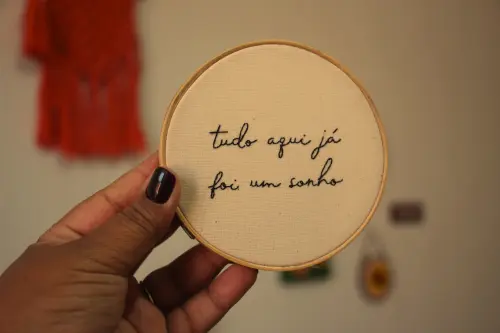 tudo aqui já
foi um sonho